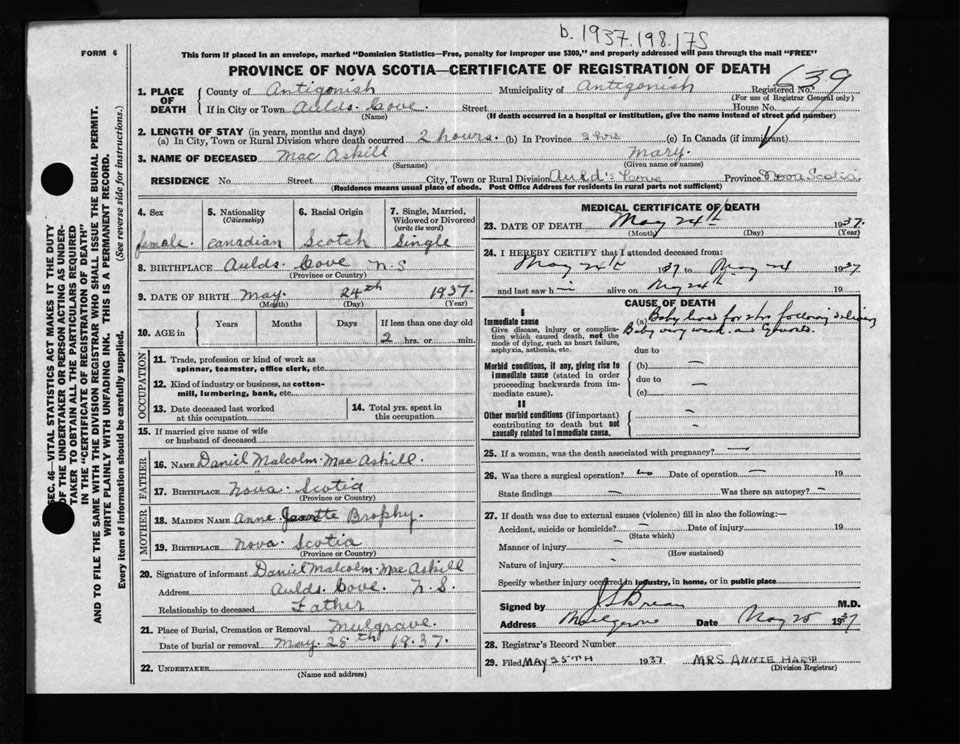 b. 1937.198.175
FORM 6
This form if placed in an envelope, marked "Dominion Statistics—Free, penalty for improper use $300," and properly addressed will pass through the mail "FREE"
PROVINCE OF NOVA SCOTIA—CERTIFICATE OF REGISTRATION OF DEATH
639
1. PLACE OF DEATH County of Antigonish Municipality of Antigonish Registered No.
(For use of Registrar General only)
If in City or Town Aulds. Cove. Street House No.
(Name) (If death occurred in a hospital or institution, give the name instead of street and number)
2. LENGTH OF STAY (in years, months and days)
(a) In City, Town or Rural Division where death occurred 2 hours. (b) In Province 2 hrs (c) In Canada (if immigrant)
3. NAME OF DECEASED Mac Askill Mary.
(Surname) (Given name or names)
RESIDENCE No. Street City, Town or Rural Division Auld's Cove Province Nova Scotia
(Residence means usual place of abode. Post Office Address for residents in rural parts not sufficient)
4. Sex female.
5. Nationality (Citizenship) Canadian
6. Racial Origin Scotch
7. Single, Married, Widowed or Divorced (write the word) Single
8. BIRTHPLACE Aulds. Cove N.S
(Province or Country)
9. DATE OF BIRTH May. 24th 1937.
(Month) (Day) (Year)
10. AGE in Years Months Days If less than one day old
2 hrs. or min.
OCCUPATION
11. Trade, profession or kind of work as spinner, teamster, office clerk, etc.
12. Kind of industry or business, as cotton-mill, lumbering, bank, etc.
13. Date deceased last worked at this occupation
14. Total yrs. spent in this occupation
15. If married give name of wife or husband of deceased
FATHER
16. NAME Daniel Malcolm. Mac Askill.
17. BIRTHPLACE Nova. Scotia
(Province or Country)
MOTHER
18. MAIDEN NAME Anne Brophy.
19. BIRTHPLACE Nova. Scotia
(Province or Country)
20. Signature of informant Daniel Malcolm. Mac Askill
Address Aulds. Cove. N.S.
Relationship to deceased Father
21. Place of Burial, Cremation or Removal Mulgrave.
Date of burial or removal May. 25th 1937.
22. UNDERTAKER
(Name and address)
MEDICAL CERTIFICATE OF DEATH
23. DATE OF DEATH May 24th 1937.
(Month) (Day) (Year)
24. I HEREBY CERTIFY that I attended deceased from:
May 24th 1937 to May 24 1937
and last saw h alive on May 24th 19
CAUSE OF DEATH
I
Immediate cause
Give disease, injury or complication which caused death, not the mode of dying, such as heart failure, asphyxia, asthenia, etc.
(a) Baby lived for 2hrs following delivery
Baby very weak and
due to
Morbid conditions, if any, giving rise to immediate cause (stated in order proceeding backwards from immediate cause).
(b) —
due to
(c) —
II
Other morbid conditions (if important) contributing to death but not causally related to immediate cause.
25. If a woman, was the death associated with pregnancy? —
26. Was there a surgical operation? no Date of operation — 19
State findings — Was there an autopsy? —
27. If death was due to external causes (violence) fill in also the following:—
Accident, suicide or homicide? — Date of injury 19
(State which)
Manner of injury —
(How sustained)
Nature of injury —
Specify whether injury occurred in industry, in home, or in public place
Signed by M.D.
Address Mulgrave Date May 25 1937
28. Registrar's Record Number
29. Filed MAY 25TH 1937 MRS ANNIE
(Division Registrar)
SEC. 46—VITAL STATISTICS ACT MAKES IT THE DUTY
OF THE UNDERTAKER OR PERSON ACTING AS UNDER-
TAKER TO OBTAIN ALL THE PARTICULARS REQUIRED
IN THE "CERTIFICATE OF REGISTRATION OF DEATH"
AND TO FILE THE SAME WITH THE DIVISION REGISTRAR WHO SHALL ISSUE THE BURIAL PERMIT.
WRITE PLAINLY WITH UNFADING INK. THIS IS A PERMANENT RECORD.
Every item of information should be carefully supplied. (See reverse side for instructions.)